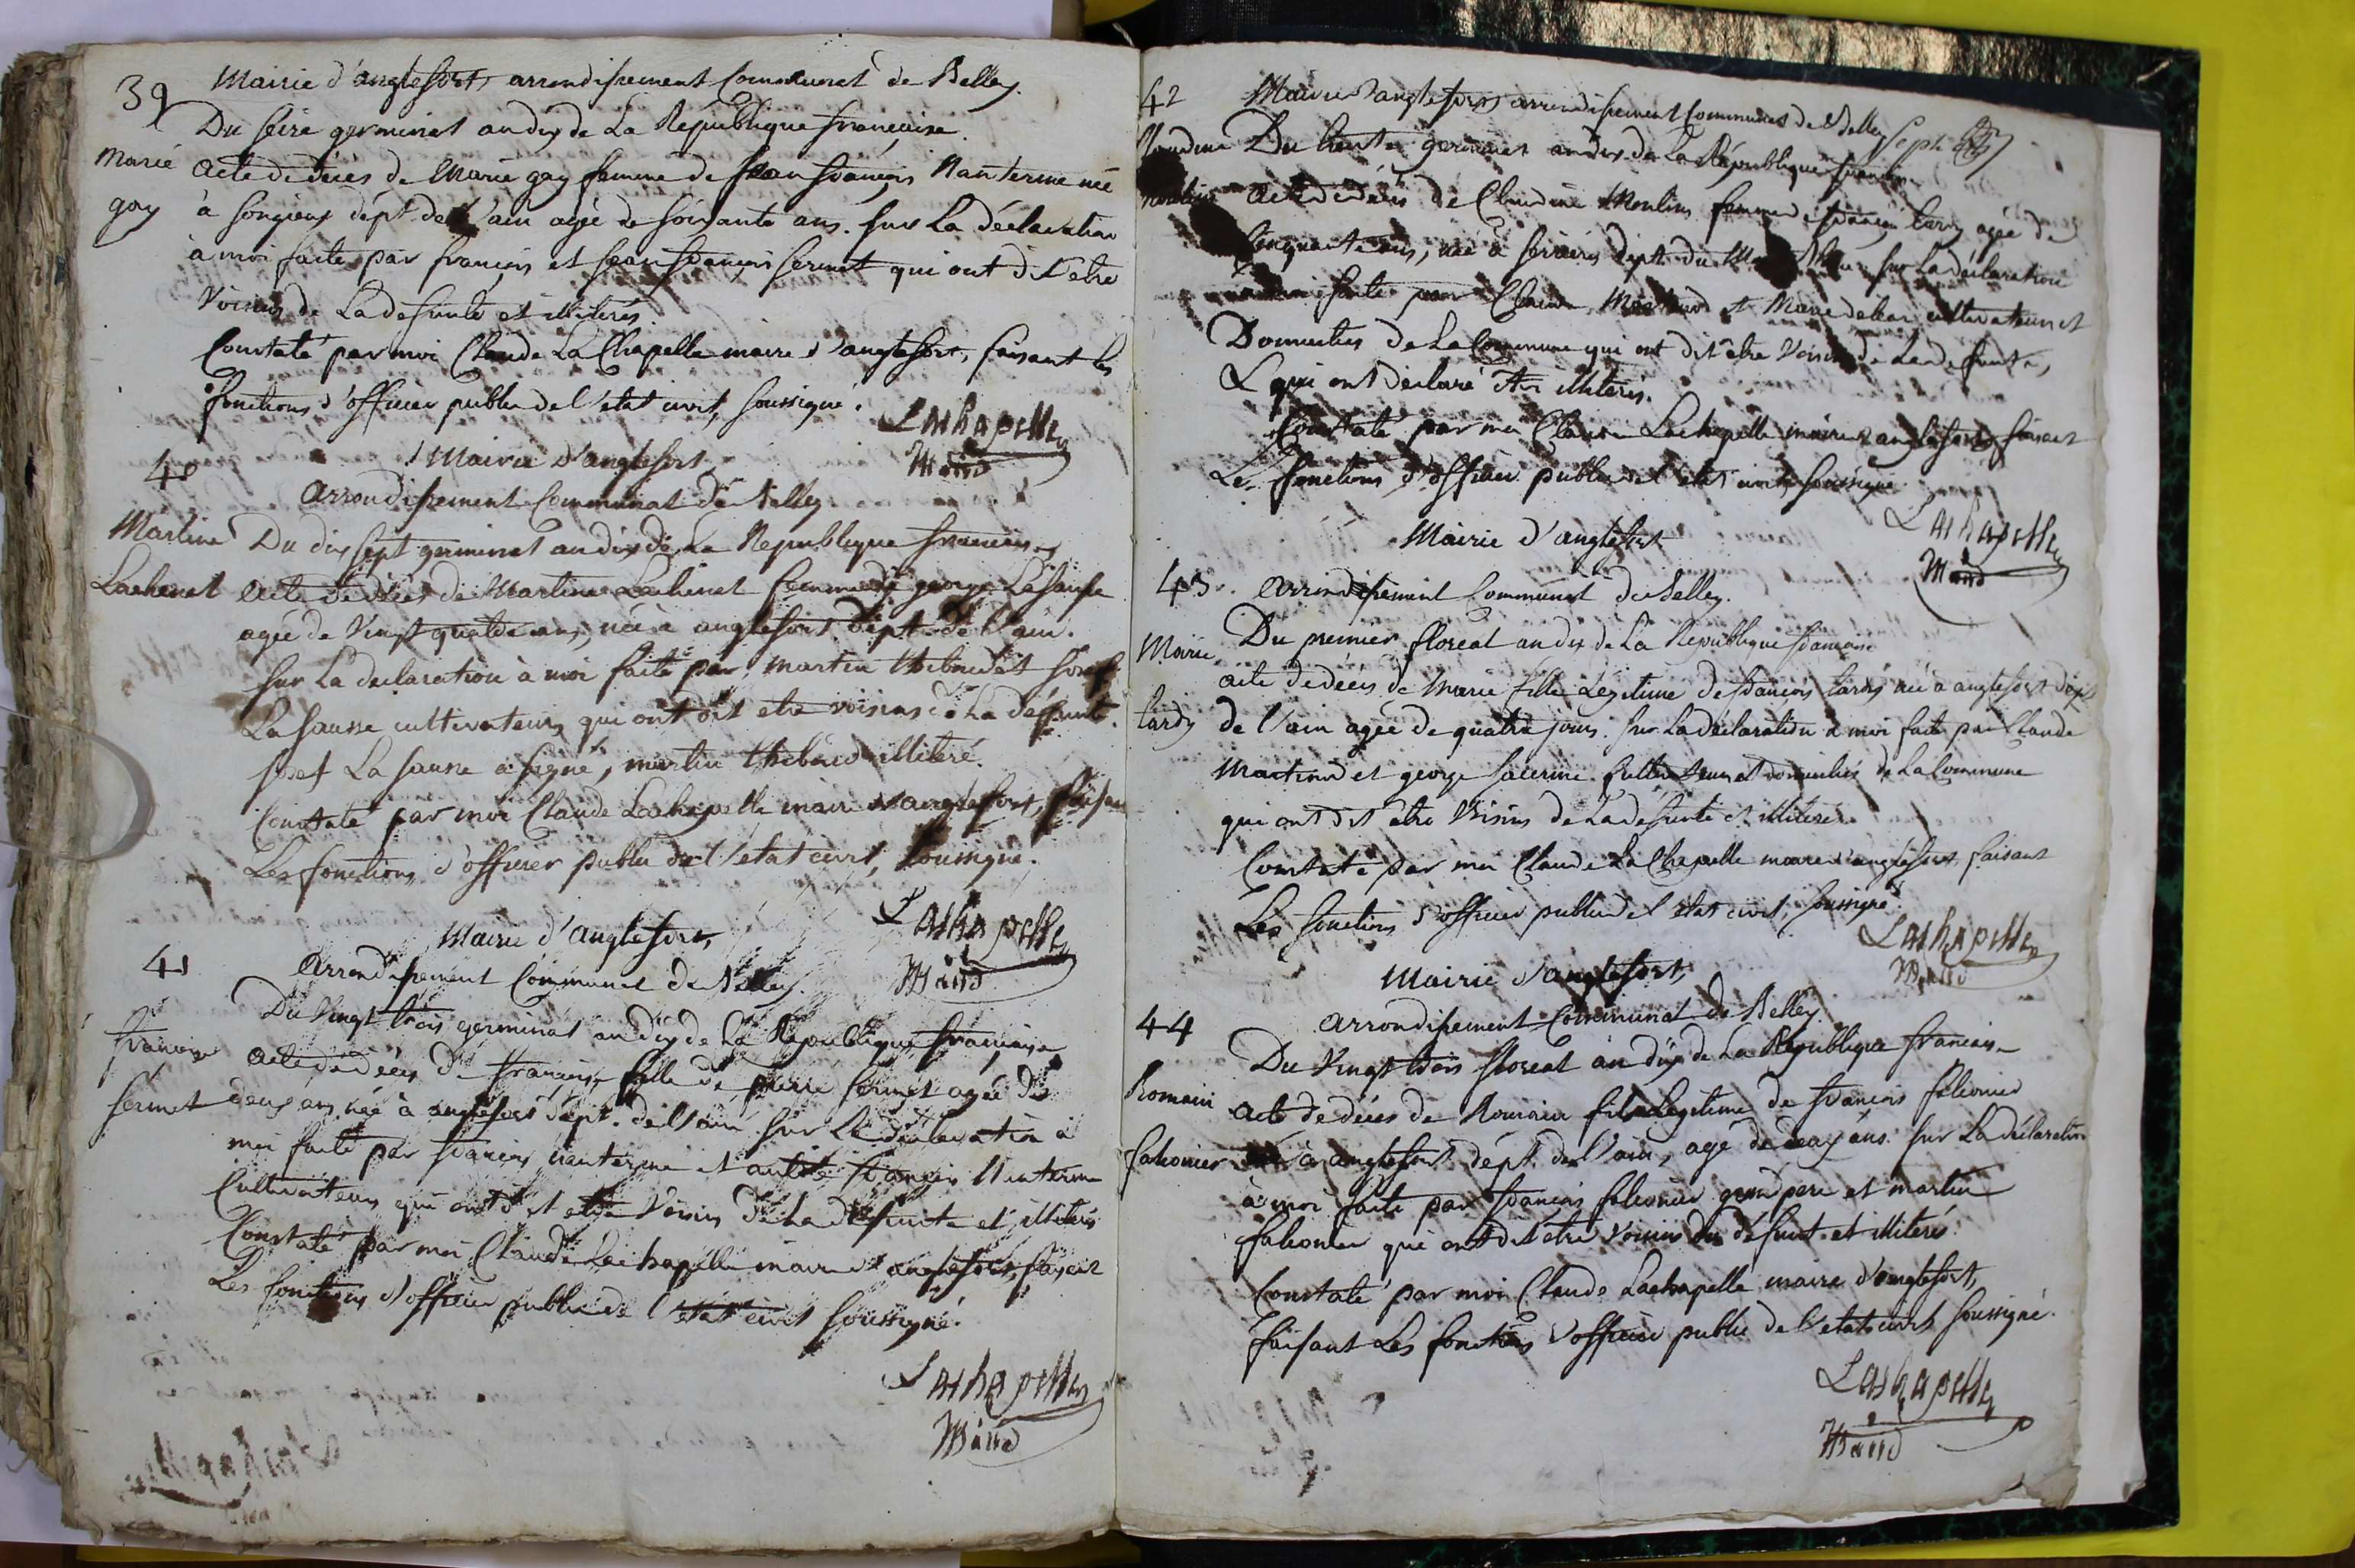 39
Mairie d'anglefort arrondissement Communal de Belley.
Du seize germinal an dix de La Republique francaise.
Marie gay
acte de décès de Marie gay femme de Jean françois Nanterme née
à songieux dépt de l'ain agée de soixante ans. sur La déclaration
à moi faite par françois et Jean françois sermet qui ont dit être
Voisins de La defunte et illiterés.
Constaté par moi Claude La Chapelle maire d'anglefort, faisant les
fonctions d'officier public de l'etat civil, soussigné.
Lachapelle
Maire
40
Mairie d'anglefort
arrondissement Communal de Belley
Martine Lachenal
Du dix sept germinal an dix de La Republique francaise
acte de décès de Martine Lachenal femme de george La sausse
agée de Vingt quatre ans, née à anglefort dépt de l'ain.
sur La declaration à moi faite par martin thibaud et josef
La sausse cultivateurs qui ont dit etre voisins de La défunte.
josef La sausse a signé, martin thibaud illiteré.
Constaté par moi Claude Lachapelle maire d'anglefort, faisant
Les fonctions d'officier public de l'etat civil, soussigné.
Lachapelle
Maire
41
Mairie d'anglefort
arrondissement Communal de Belley.
françoise sermet
Du Vingt trois germinal an dix de La Republique française
acte de décès de françoise fille de pierre sermet agée de
deux ans née à anglefort dépt. de l'ain sur La déclaration à
moi faite par françois nanterme et autre françois Nanterme
Cultivateurs qui ont dit etre Voisins de La defunte et illiterés
Constaté par moi Claude Lachapelle maire d'anglefort, faisant
Les fonctions d'officier public de l'etat civil soussigné.
Lachapelle
Maire
42
Mairie d'anglefort arrondissement Communal de Belley
Sept
Claudine Moulin
Du trente germinal an dix de La République francaise
acte de décès de Claudine Moulin femme de françois tardy agée de
Cinquante ans, née à serrieres dépt. du sur La déclaration
à moi faite par Claude Martinod et cultivateurs et
Domiciliés de La Commune qui ont dit être Voisins de La defunte,
& qui ont déclaré etre illiterés.
Constaté par moi Claude Lachapelle maire d'anglefort faisant
Les fonctions d'officier public de l'etat civil, soussigné.
Lachapelle
Maire
Mairie d'anglefort
43. arrondissement Communal de Belley.
Marie tardy
Du premier floreal an dix de La Republique francaise
acte de décès de Marie fille Legitime de françois tardy née à anglefort dépt
de l'ain agée de quatre jours. sur La déclaration à moi faite par Claude
Martinod et george cultivateurs et domiciliés de La Commune
qui ont dit être Voisins de La defunte et illiterés.
Constaté par moi Claude La Chapelle maire d'anglefort, faisant
Les fonctions d'officier public de l'etat civil, soussigné
Lachapelle
Maire
Mairie d'anglefort,
44
arrondissement Communal de Belley.
Romain falconier
Du Vingt trois floreal an dix de La République francaise
acte de décès de Romain fils Legitime de françois falconier
né à anglefort dépt. de l'ain, agé de deux ans. sur La déclaration
à moi faite par françois falconier grand pere et martin
falconier qui ont dit être Voisins du défunt et illiterés.
Constaté par moi Claude Lachapelle maire d'anglefort,
faisant Les fonctions d'officier public de l'etat civil soussigné.
Lachapelle
Maire